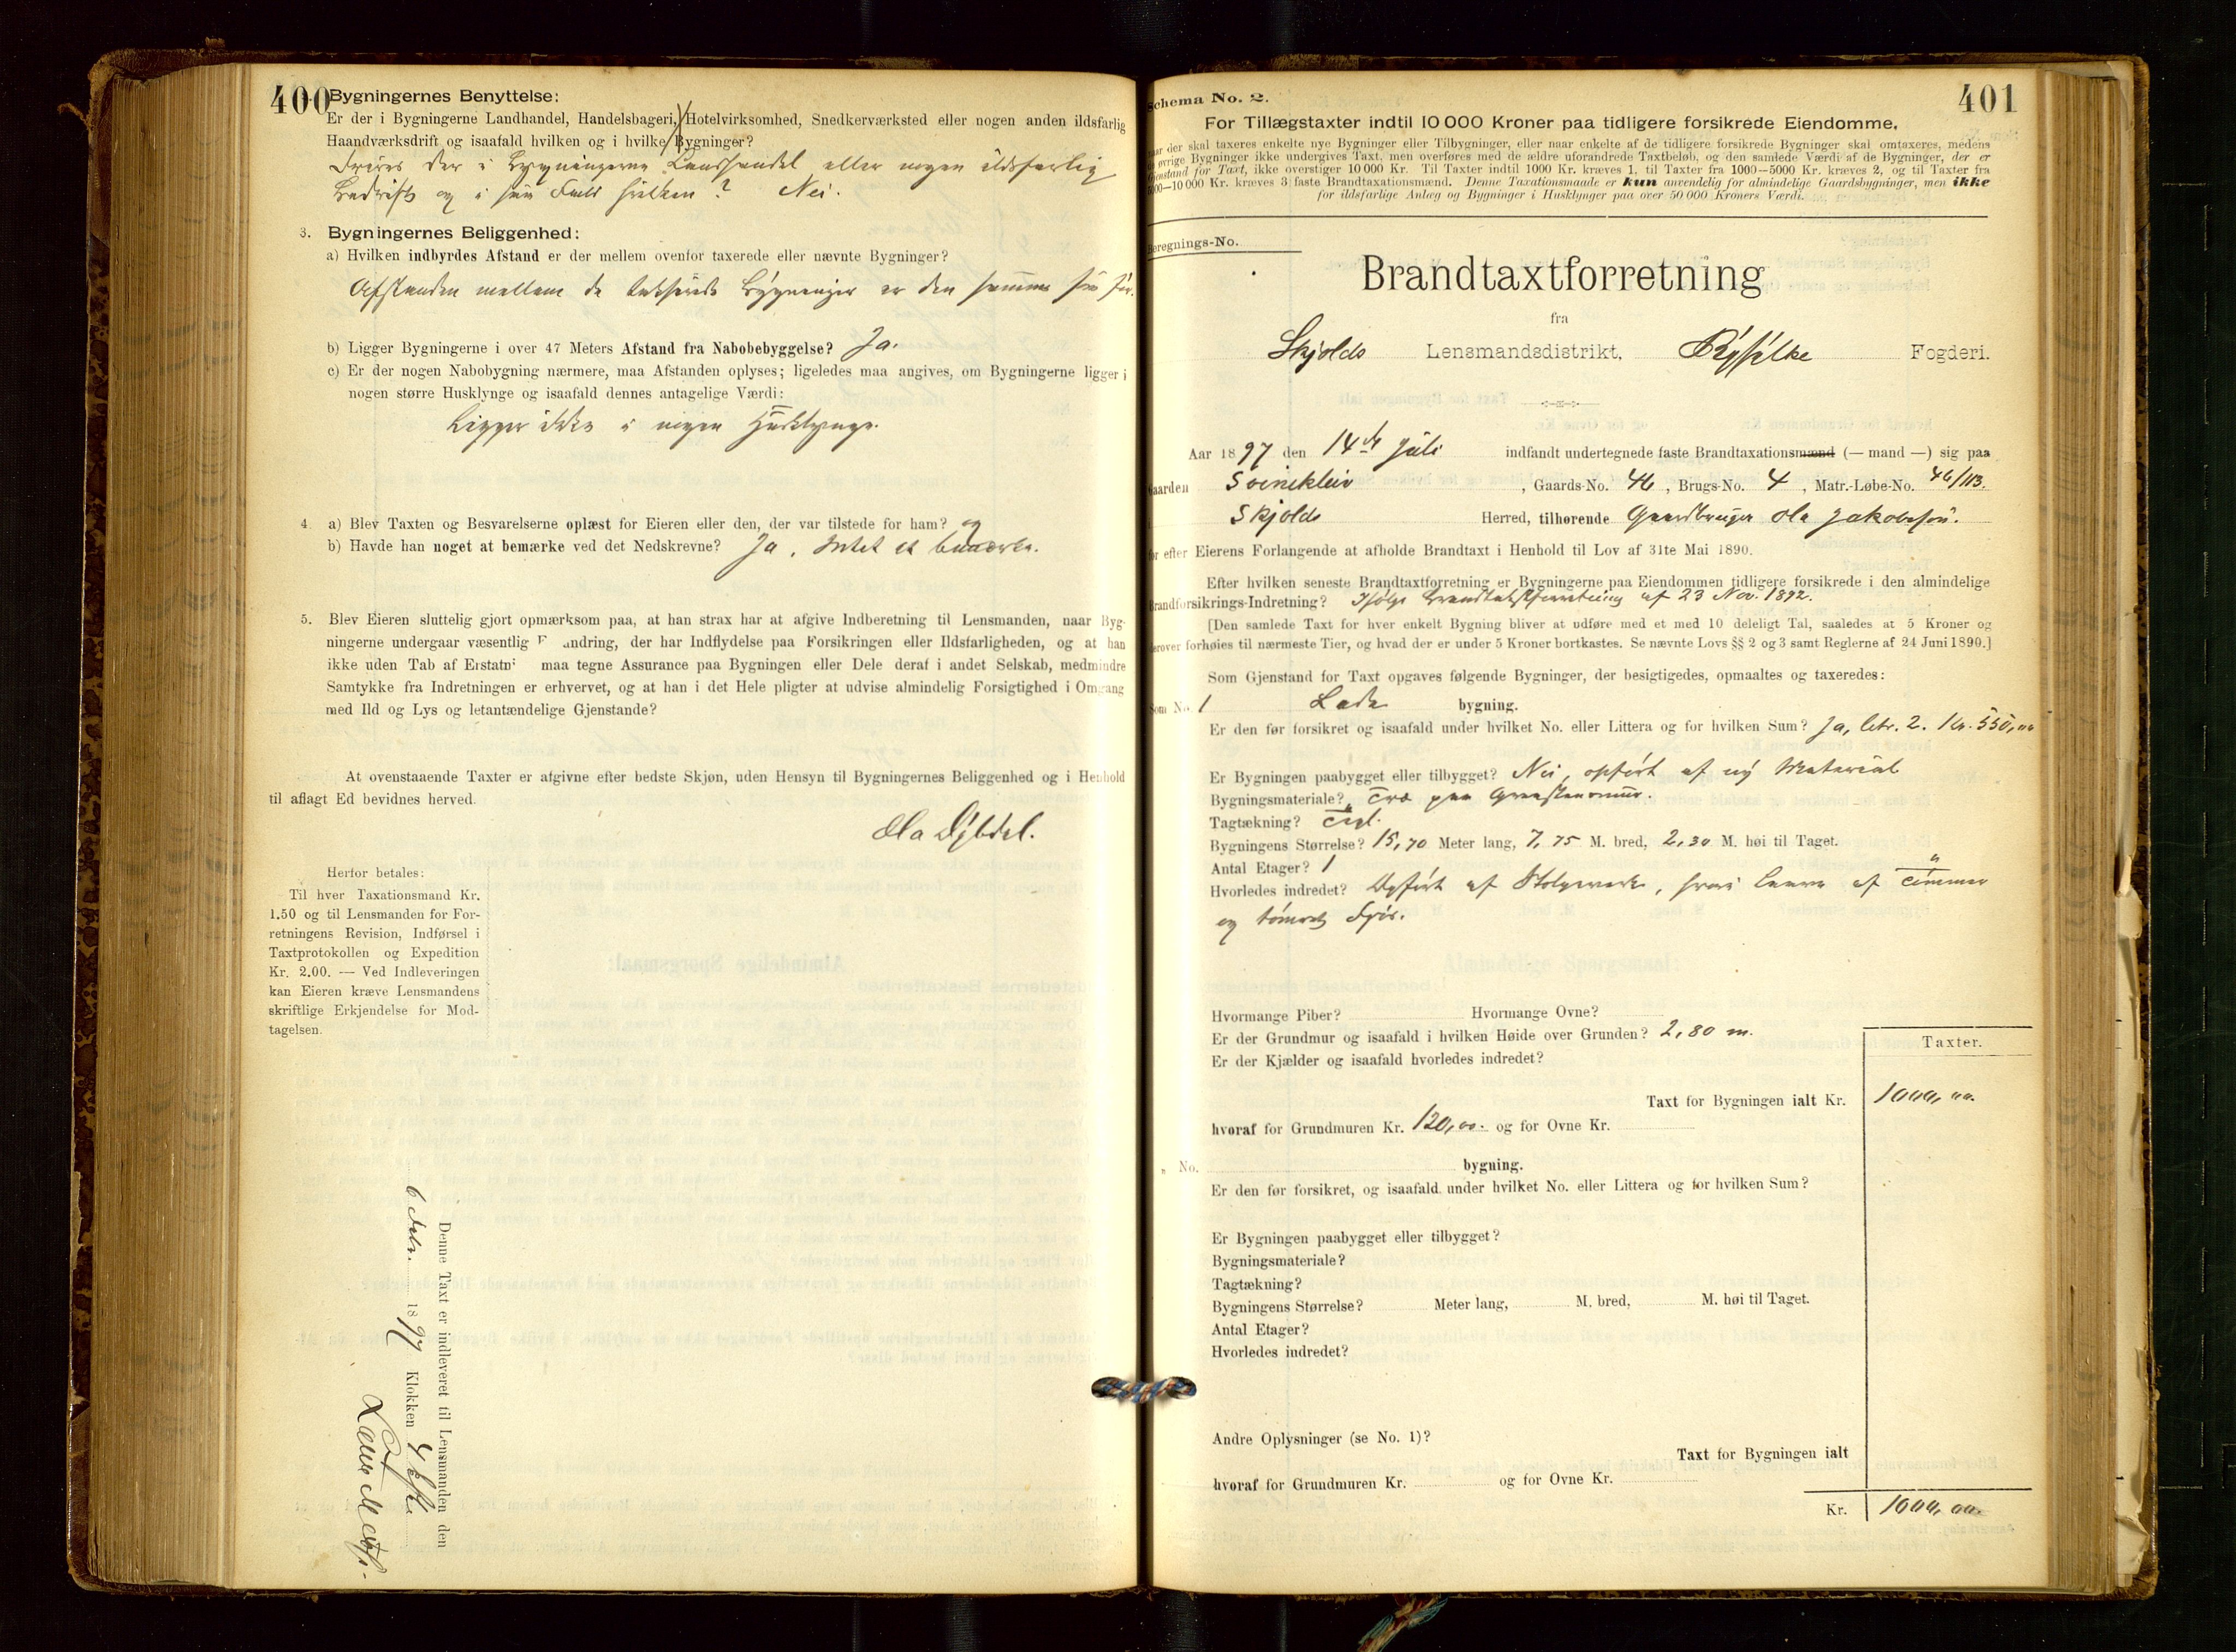 400
Bygningernes Benyttelse:
Er der i Bygningerne Landhandel, Handelsbageri, Hotelvirksomhed, Snedkerværksted eller nogen anden ildsfarlig
Haandværksdrift og isaafald hvilken og i hvilke Bygninger?
Drives der i Bygningerne Landhandel eller nogen ildsfarlig
Bedrift og i saa Fald hvilken? Nei.
3. Bygningernes Beliggenhed:
a) Hvilken indbyrdes Afstand er der mellem ovenfor taxerede eller nævnte Bygninger?
Afstanden mellem de taxerede Bygninger er den samme som før.
b) Ligger Bygningerne i over 47 Meters Afstand fra Nabobebyggelse? Ja.
c) Er der nogen Nabobygning nærmere, maa Afstanden oplyses; ligeledes maa angives, om Bygningerne ligger i
nogen større Husklynge og isaafald dennes antagelige Værdi:
Ligger ikke i nogen Husklynge.
4. a) Blev Taxten og Besvarelserne oplæst for Eieren eller den, der var tilstede for ham? og
b) Havde han noget at bemærke ved det Nedskrevne? Ja, Intet at bemærke.
5. Blev Eieren sluttelig gjort opmærksom paa, at han strax har at afgive Indberetning til Lensmanden, naar Byg-
ningerne undergaar væsentlig F andring, der har Indflydelse paa Forsikringen eller Ildsfarligheden, og at han
ikke uden Tab af Erstatn maa tegne Assurance paa Bygningen eller Dele deraf i andet Selskab, medmindre
Samtykke fra Indretningen er erhvervet, og at han i det Hele pligter at udvise almindelig Forsigtighed i Omgang
med Ild og Lys og letantændelige Gjenstande?
At ovenstaaende Taxter er afgivne efter bedste Skjøn, uden Hensyn til Bygningernes Beliggenhed og i Henhold
til aflagt Ed bevidnes herved.
Ola
Herfor betales:
Til hver Taxationsmand Kr.
1.50 og til Lensmanden for For-
retningens Revision, Indførsel i
Taxtprotokollen og Expedition
Kr. 2.00. — Ved Indleveringen
kan Eieren kræve Lensmandens
skriftlige Erkjendelse for Mod-
tagelsen.
Denne Taxt er indleveret til Lensmanden den
6 1897 Klokken 4
401
Schema No. 2.
For Tillægstaxter indtil 10 000 Kroner paa tidligere forsikrede Eiendomme.
Naar der skal taxeres enkelte nye Bygninger eller Tilbygninger, eller naar enkelte af de tidligere forsikrede Bygninger skal omtaxeres, medens
de øvrige Bygninger ikke undergives Taxt, men overføres med de ældre uforandrede Taxtbeløb, og den samlede Værdi af de Bygninger, der er
Gjenstand for Taxt, ikke overstiger 10 000 Kr. Til Taxter indtil 1000 Kr. kræves 1, til Taxter fra 1000—5000 Kr. kræves 2, og til Taxter fra
5000—10 000 Kr. kræves 3 faste Brandtaxationsmænd. Denne Taxationsmaade er kun anvendelig for almindelige Gaardsbygninger, men ikke
for ildsfarlige Anlæg og Bygninger i Husklynger paa over 50 000 Kroners Værdi.
Beregnings-No.
Brandtaxtforretning
fra
Skjolds Lensmandsdistrikt, Ryfylke Fogderi.
Aar 1897 den 14de Juli indfandt undertegnede faste Brandtaxationsmænd (— mand —) sig paa
Gaarden Svinekleiv, Gaards-No. 46, Brugs-No. 4, Matr.-Løbe-No. 46/113.
Skjolds Herred, tilhørende Gaardbruger Ola Jakobsen.
for efter Eierens Forlangende at afholde Brandtaxt i Henhold til Lov af 31te Mai 1890.
Efter hvilken seneste Brandtaxtforretning er Bygningerne paa Eiendommen tidligere forsikrede i den almindelige
Brandforsikrings-Indretning? Ifølge Brandtaxtforretning af 23 Nov. 1892.
[Den samlede Taxt for hver enkelt Bygning bliver at udføre med et med 10 deleligt Tal, saaledes at 5 Kroner og
derover forhøies til nærmeste Tier, og hvad der er under 5 Kroner bortkastes. Se nævnte Lovs §§ 2 og 3 samt Reglerne af 24 Juni 1890.]
Som Gjenstand for Taxt opgaves følgende Bygninger, der besigtigedes, opmaaltes og taxeredes:
Som No. 1 Lade bygning.
Er den før forsikret og isaafald under hvilket No. eller Littera og for hvilken Sum? Ja, litr. 2. Kr. 550,00
Er Bygningen paabygget eller tilbygget? Nei, opført af ny Material
Bygningsmateriale? Træ paa Graastensmur.
Tagtækning? Tegl.
Bygningens Størrelse? 15,70 Meter lang, 7,75 M. bred, 2,30 M. høi til Taget.
Antal Etager? 1
Hvorledes indredet? Opført af Stolpeverk, hvori Laave af Tømmer
og tømret Fjøs.
Hvormange Piber? Hvormange Ovne?
Er der Grundmur og isaafald i hvilken Høide over Grunden? 2,80 m.
Er der Kjælder og isaafald hvorledes indredet?
Taxter.
Taxt for Bygningen ialt Kr. 1000,00.
hvoraf for Grundmuren Kr. 120,00. og for Ovne Kr.
„ No. bygning.
Er den før forsikret, og isaafald under hvilket No. eller Littera og for hvilken Sum?
Er Bygningen paabygget eller tilbygget?
Bygningsmateriale?
Tagtækning?
Bygningens Størrelse? Meter lang, M. bred, M. høi til Taget.
Antal Etager?
Hvorledes indredet?
Andre Oplysninger (se No. 1)?
Taxt for Bygningen ialt
hvoraf for Grundmuren Kr. og for Ovne Kr.
Kr. 1000,00